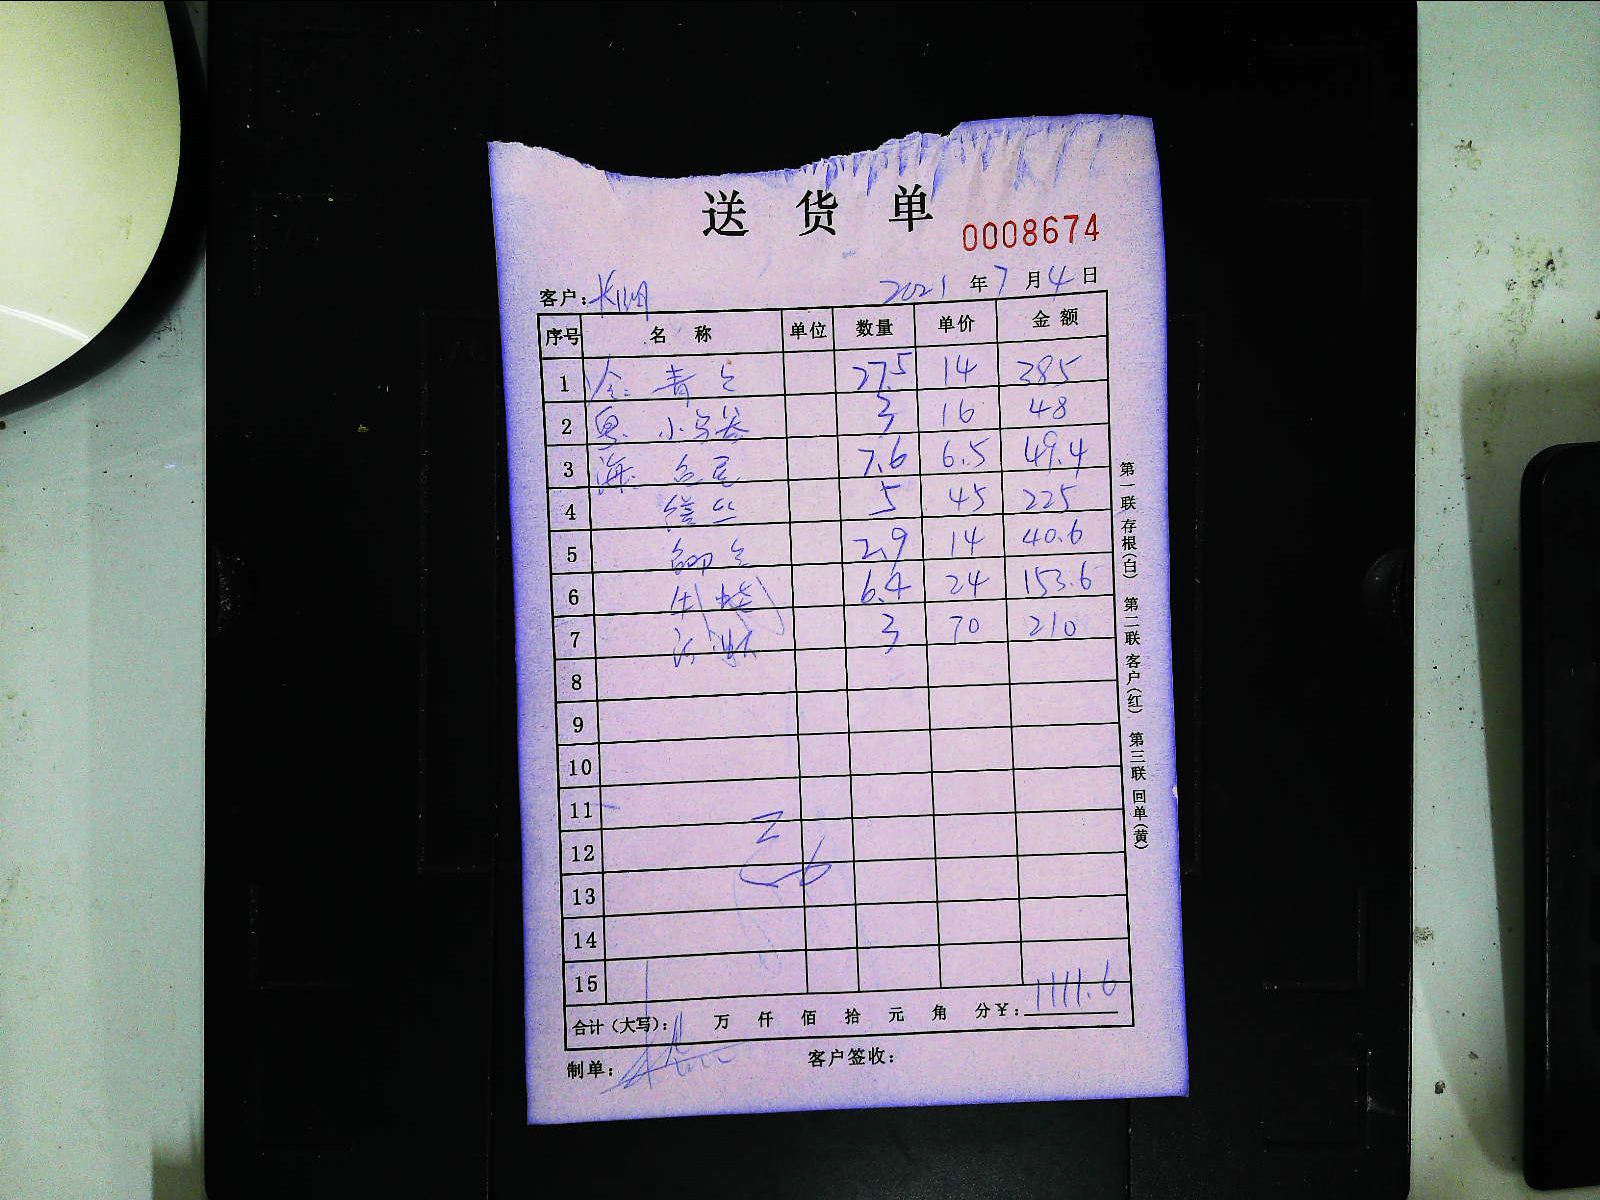 送 货 单
0008674
客户: 2021 年 7 月 4 日
序号 名 称 单位 数量 单价 金 额
1 青 27.5 14 385
2 鱼 小 3 16 48
3 海 鱼尾 7.6 6.5 49.4
4 5 45 225
5 2.9 14 40.6
6 6.4 24 153.6
7 3 70 210
8
9
10
11
12
13
14
15
合计(大写): 万 仟 佰 拾 元 角 分 ¥: 1111.6
制单: 客户签收:
第一联 存根(白) 第二联 客户(红) 第三联 回单(黄)